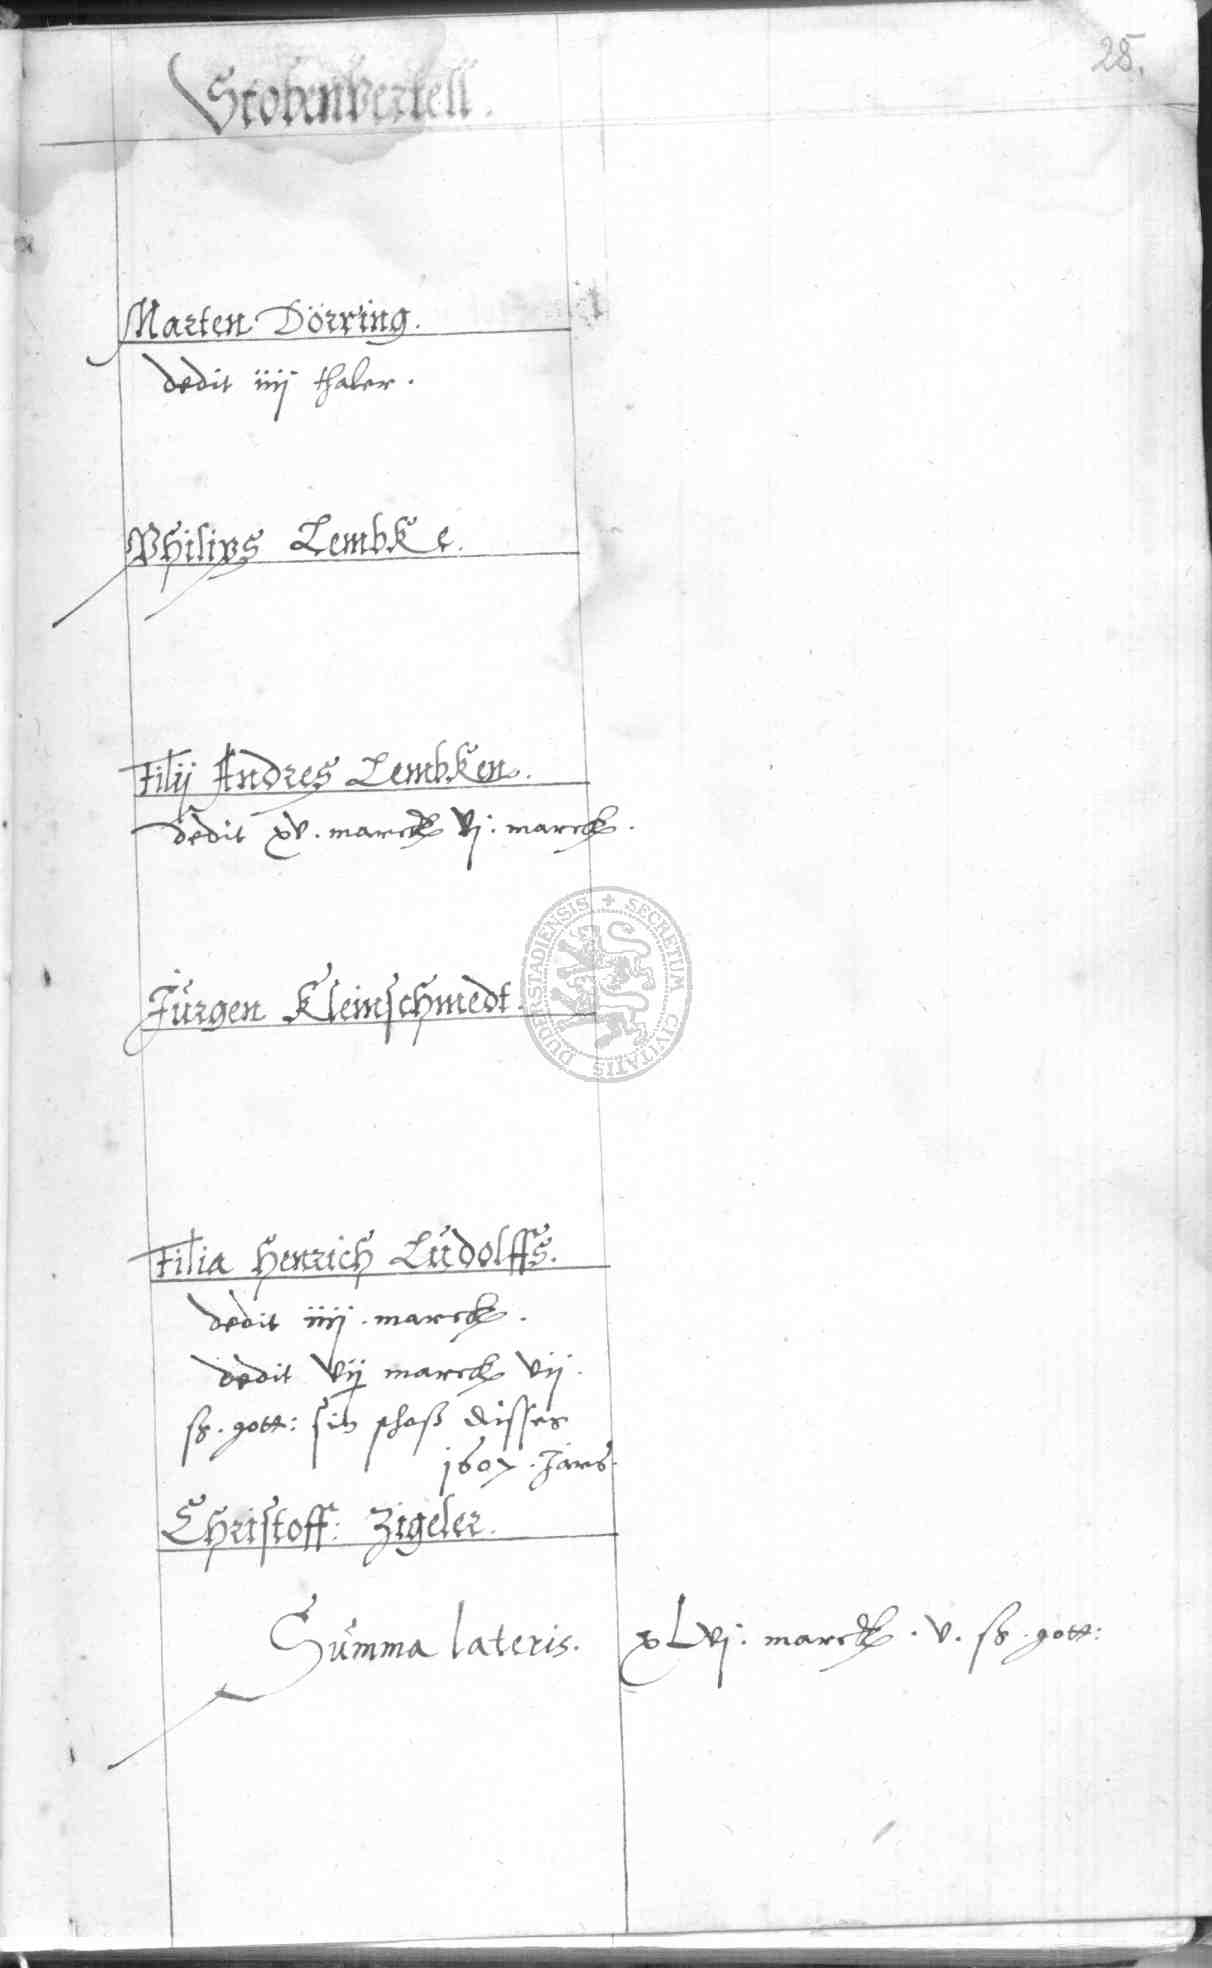 28.
Stobenvertell.
Marten Dörring.
dedit iiij thaler.
Philips Lembke.
Filij Andres Lembken.
dedit xv. marck vj. marck.
Jürgen Kleinschmedt.
Filia Henrich Ludolffs.
dedit iiij. marck.
dedit vij marck vij.
ß. gott: sin schoß disses
1607. Jars.
Christoff: Zigeler.
Summa lateris. xLvj. marck. v. ß. gott:
SECRETUM CIVITATIS DUDERSTADIENSIS